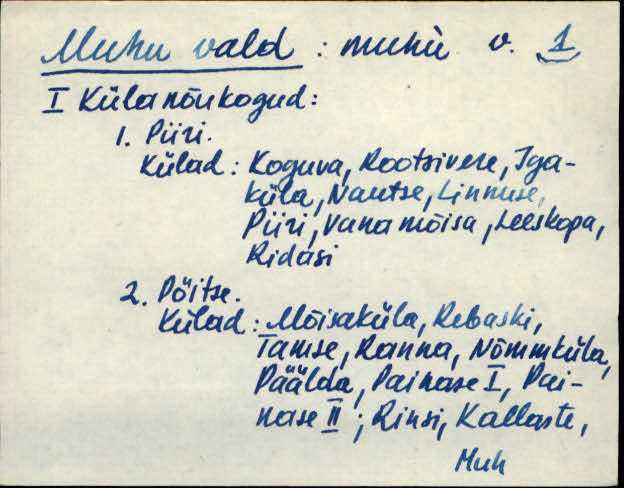 Muhu vald : muhu v. 1
I Külanõukogud:
1. Piiri.
Külad: Koguva, Rootsivere, Iga-
küla, Nautse, Linnuse,
Piiri, Vanamõisa, Leeskopa,
Ridasi
2. Põitse.
Külad: Mõisaküla, Rebaski,
Tamse, Ranna, Nõmmküla,
Päälda, Painase I, Pai-
nase II; Rinsi, Kallaste,
Muh